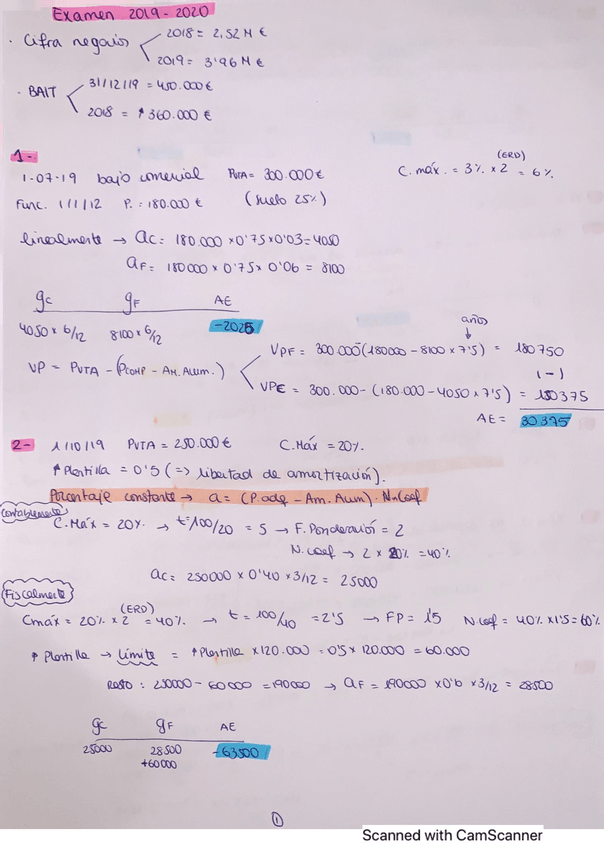 Examen 2019-2020
· Cifra negocios 2018 = 2,52 M €
2019 = 3'96 M €
· BAIT 31/12/19 = 450.000 €
2018 = ↑ 360.000 €
1-
1-07-19 bajo comercial PVTA = 300.000 € C.máx. = 3% × 2 (ERD) = 6%
Func. 1/1/12 P. = 180.000 € (suelo 25%)
linealmente → ac = 180.000 × 0'75 × 0'03 = 4050
aF = 180000 × 0'75 × 0'06 = 8100
gc gF AE
4050 × 6/12 8100 × 6/12 -2025
años
VP = PVTA - (PCOMP - AM. ACUM.)
VPF = 300.000 (180000 - 8100 × 7'5) = 180750
(-)
VPE = 300.000 - (180.000 - 4050 × 7'5) = 150375
AE = 30375
2- 1/10/19 PVTA = 250.000 € C.Máx = 20%.
↑ Plantilla = 0'5 (=> libertad de amortización).
Porcentaje constante → a = (P.adq - Am. Acum) · N.coef
Contablemente
C.Máx = 20% → t = 100/20 = 5 → F. Ponderación = 2
N.coef → 2 × 20% = 40%
ac = 250000 × 0'40 × 3/12 = 25000
Fiscalmente
Cmáx = 20% × 2 (ERD) = 40% → t = 100/40 = 2'5 → FP = 1'5 N.coef = 40% × 1'5 = 60%
↑ Plantilla → límite = ↑ Plantilla × 120.000 = 0'5 × 120.000 = 60.000
Resto : 250000 - 60000 = 190000 → aF = 190000 × 0'6 × 3/12 = 28500
gc gF AE
25000 28500 -63500
+60000
1
Scanned with CamScanner